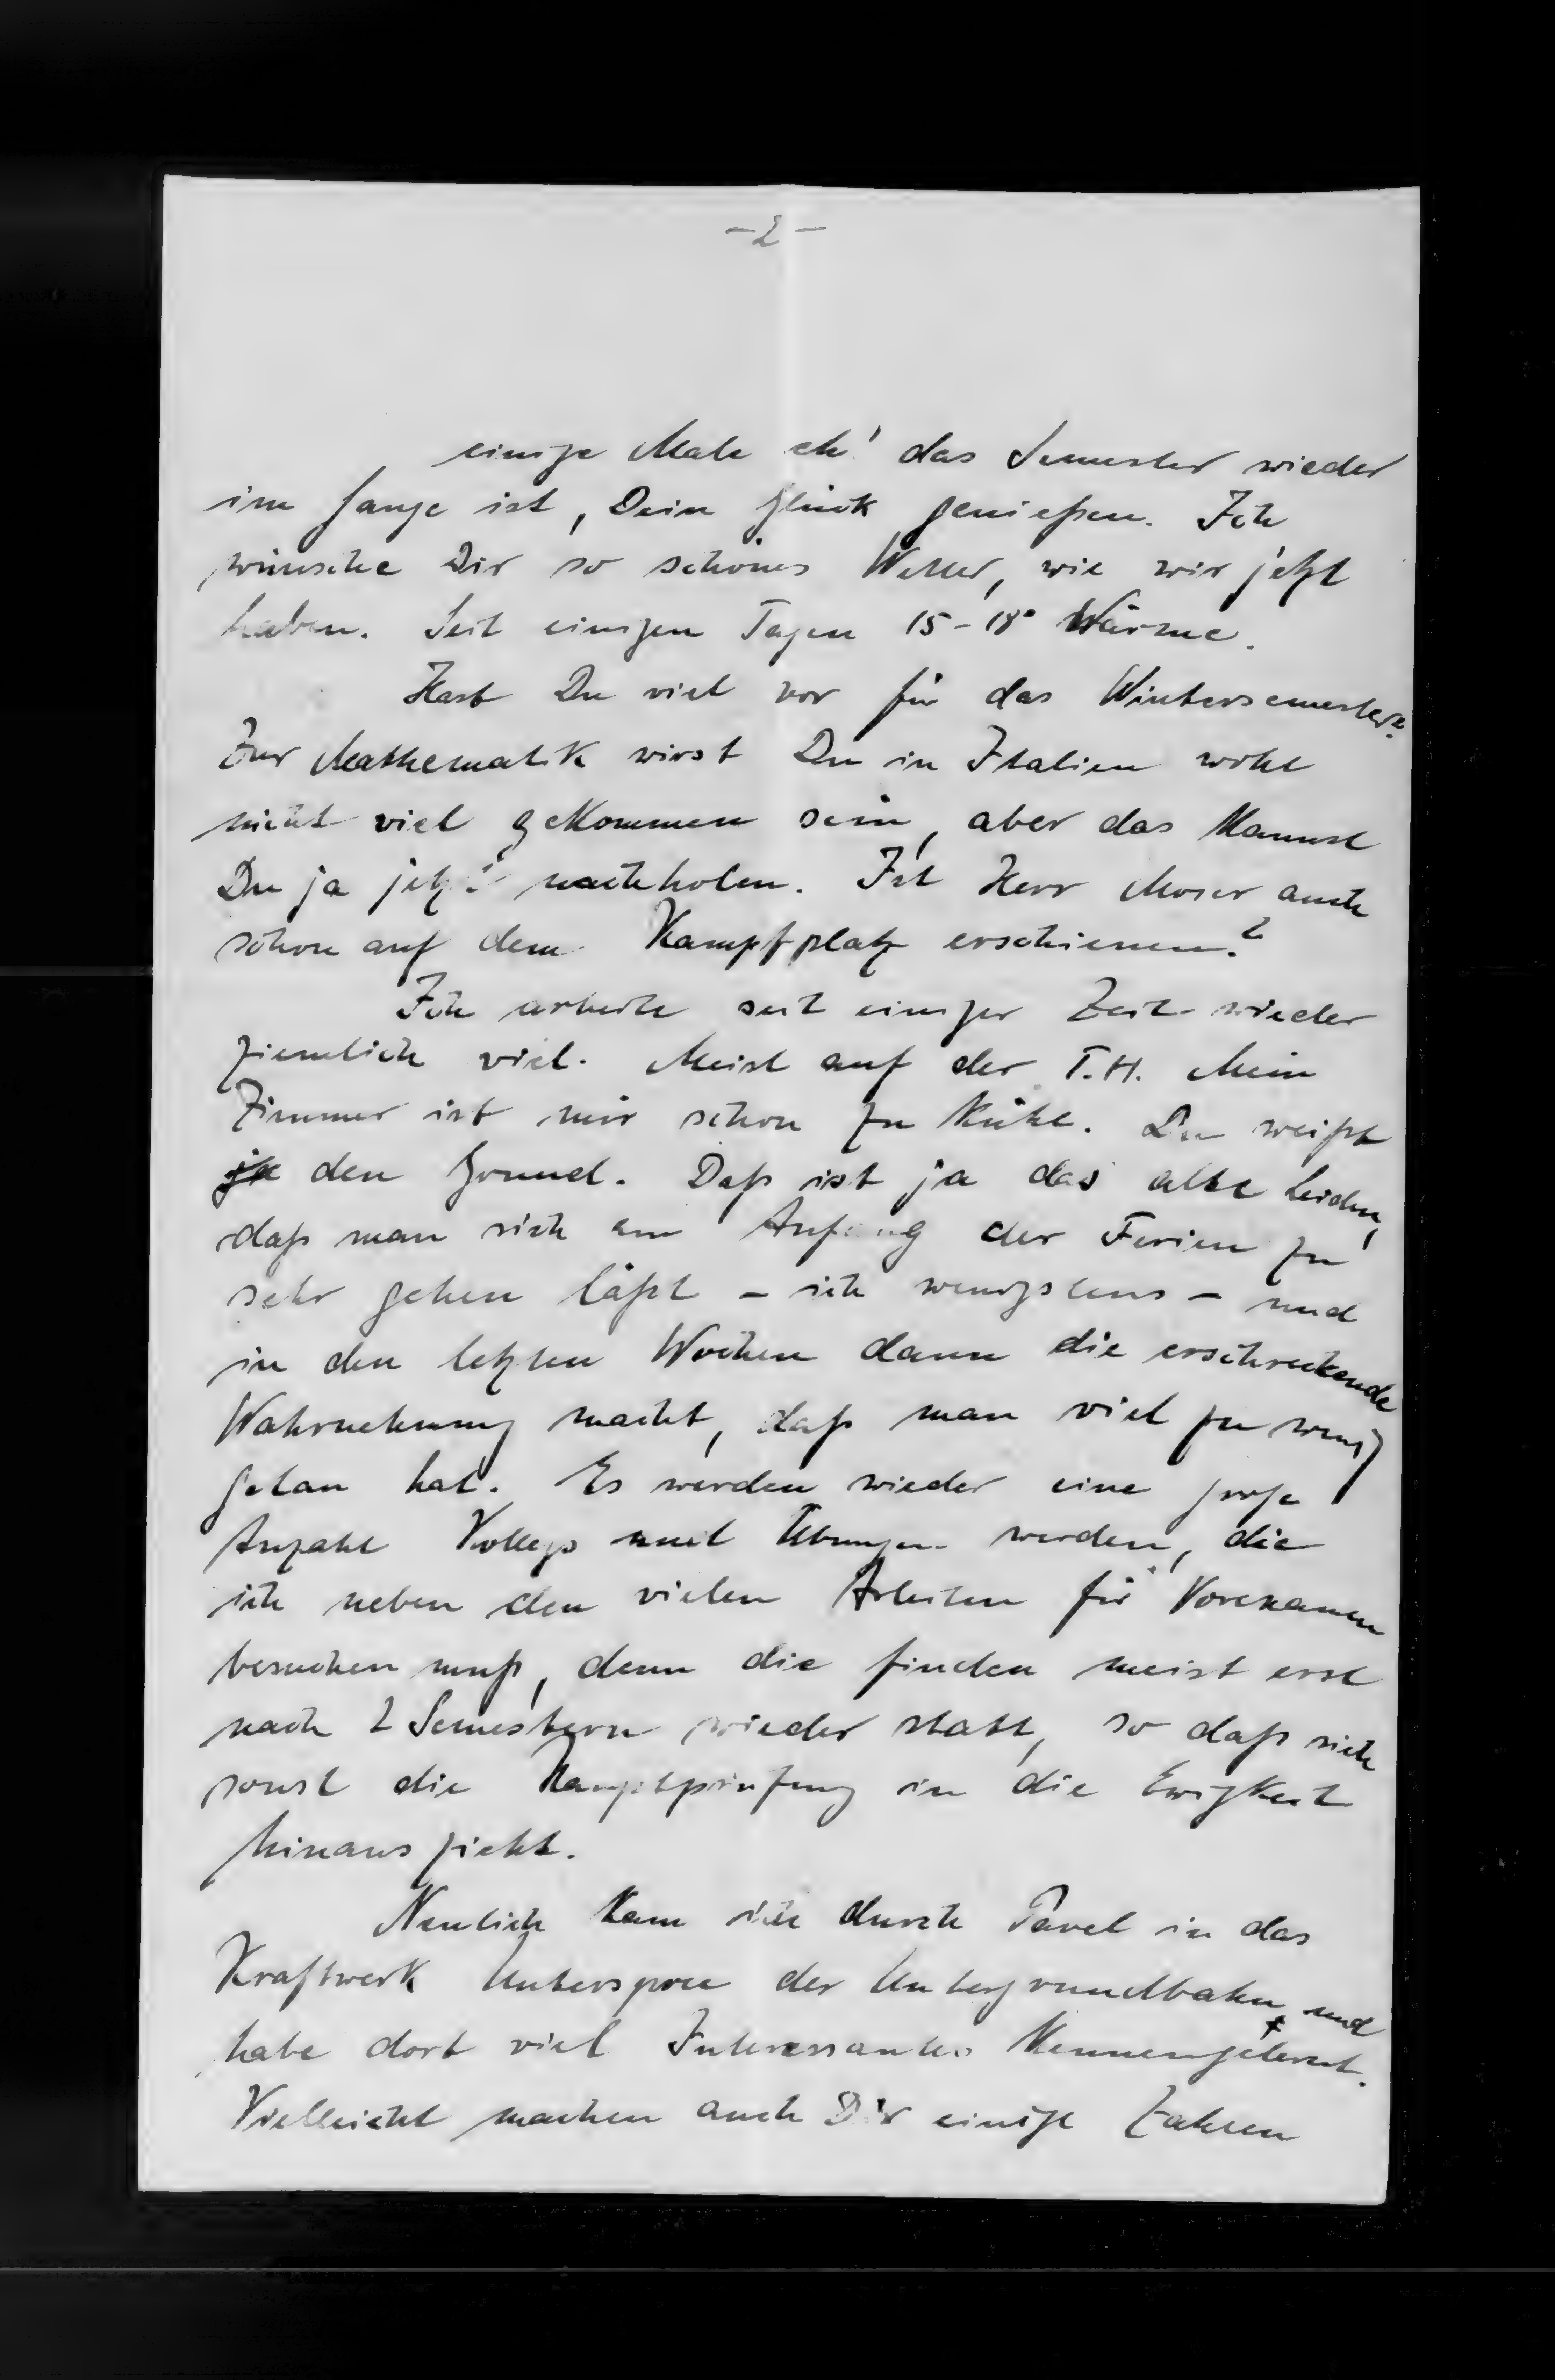 -2-
einige Male eh' das Semester wieder
im Gange ist, Dein Glück genießen. Ich
wünsche Dir so schönes Wetter, wie wir jetzt
haben. Seit einigen Tagen 15-18° Wärme.
Hast Du viel vor für das Wintersemester?
Zur Mathematik wirst Du in Italien wohl
nicht viel gekommen sein, aber das kannst
Du ja jetzt nachholen. Ist Herr Moser auch
schon auf dem Kampfplatz erschienen?
Ich arbeite seit einiger Zeit wieder
ziemlich viel. Meist auf der T.H. Mein
Zimmer ist mir schon zu kühl. Du weißt
ja den Grund. Daß ist ja das alte Leiden,
daß man sich am Anfang der Ferien zu
sehr gehen läßt - ich wenigstens - und
in den letzten Wochen dann die erschreckende
Wahrnehmung macht, daß man viel zu wenig
getan hat. Es werden wieder eine große
Anzahl Kollegs und Übungen werden, die
ich neben den vielen Arbeiten für Vorexamen
besuchen muß, denn die finden meist erst
nach 2 Semestern wieder statt, so daß sich
sonst die Hauptprüfung in die Ewigkeit
hinaus zieht.
Neulich kam ich durch Pavel in das
Kraftwerk Unterspree der Untergrundbahn und
habe dort viel Interessantes kennengelernt.
Vielleicht machen auch Dir einige Zahlen